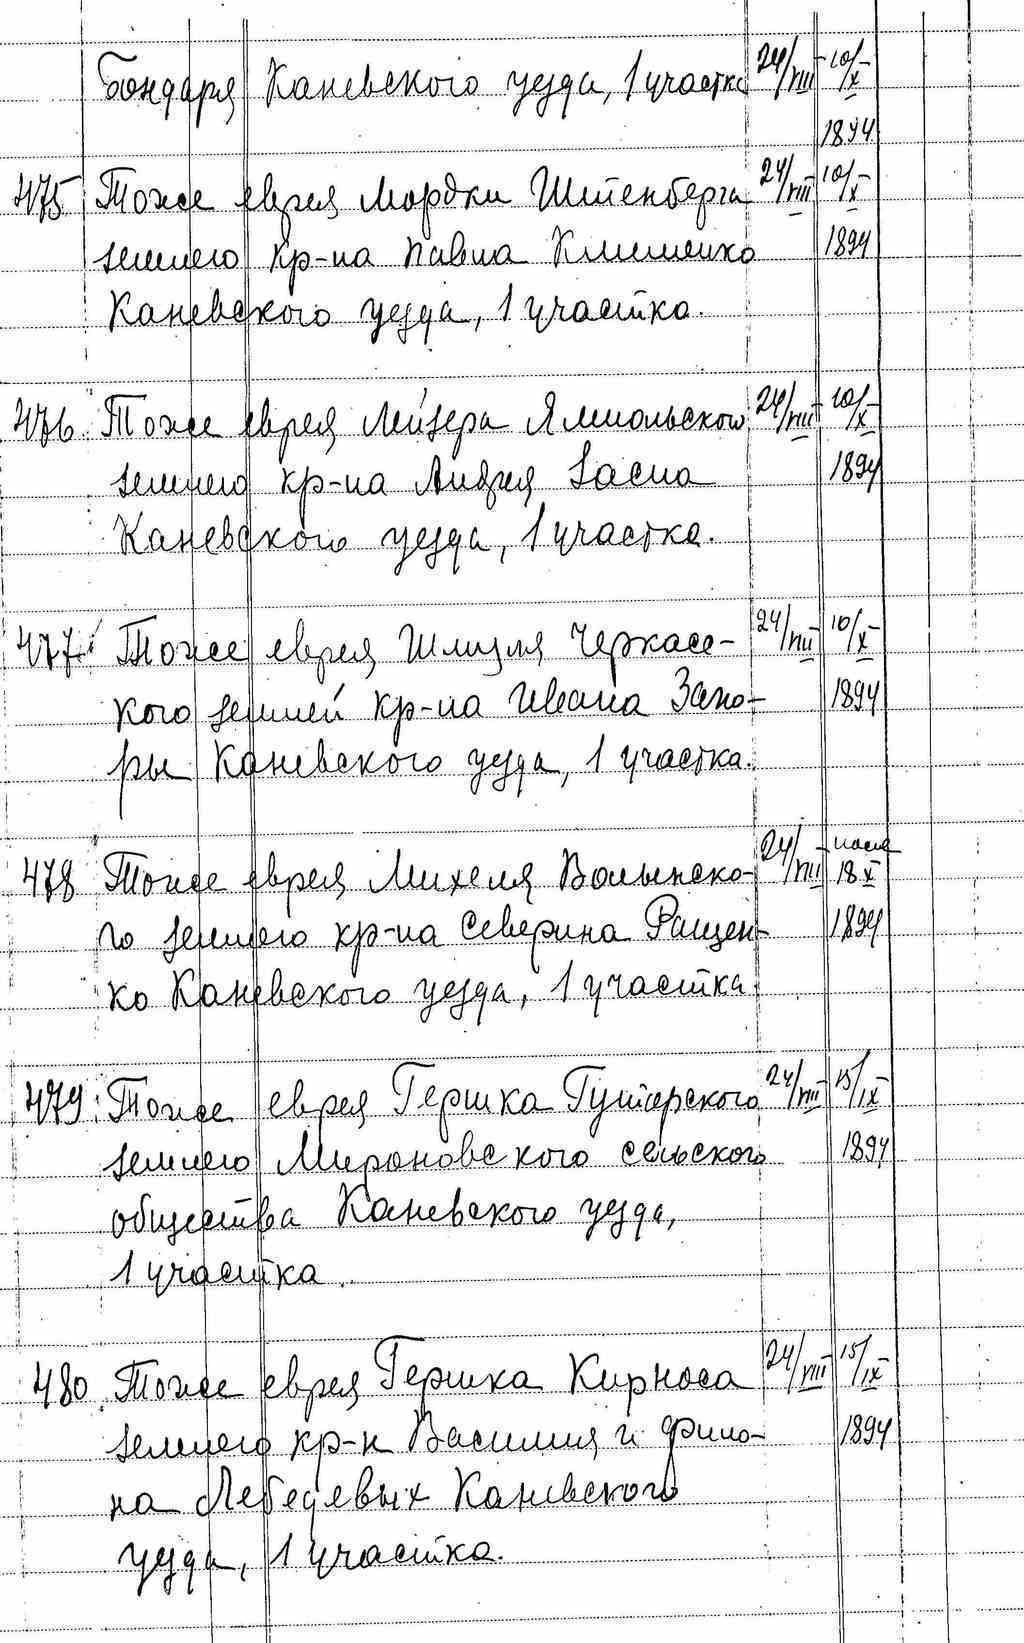 Бондаря Каневского уезда, 1 участка 24/VIII – 10/X –
1894
475 Тоже еврея Мордки Штенберга 24/VIII – 10/X –
землею кр-на Павла Клименко 1894
Каневского уезда, 1 участка.
476 Тоже еврея Лейзера Ямпольского 24/VIII – 10/X –
землею кр-на Андрея Заспа 1894
Каневского уезда, 1 участка.
477 Тоже еврея Шмуля Черкасс- 24/VIII – 10/X –
кого землей кр-на Ивана Запо- 1894
ры Каневского уезда, 1 участка.
478 Тоже еврея Михеля Волынско- 24/VIII – после
18 X
го землею кр-на Северина Ращен- 1894
ко Каневского уезда, 1 участка
479 Тоже еврея Гершка Гутарского 24/VIII – 15/IX
землею Мироновского сельского 1894
общества Каневского уезда,
1 участка.
480 Тоже еврея Гершка Кирноса 24/VIII 15/IX
землею кр-н Василия и Фило- 1894
на Лебедевых Каневского
уезда, 1 участка.